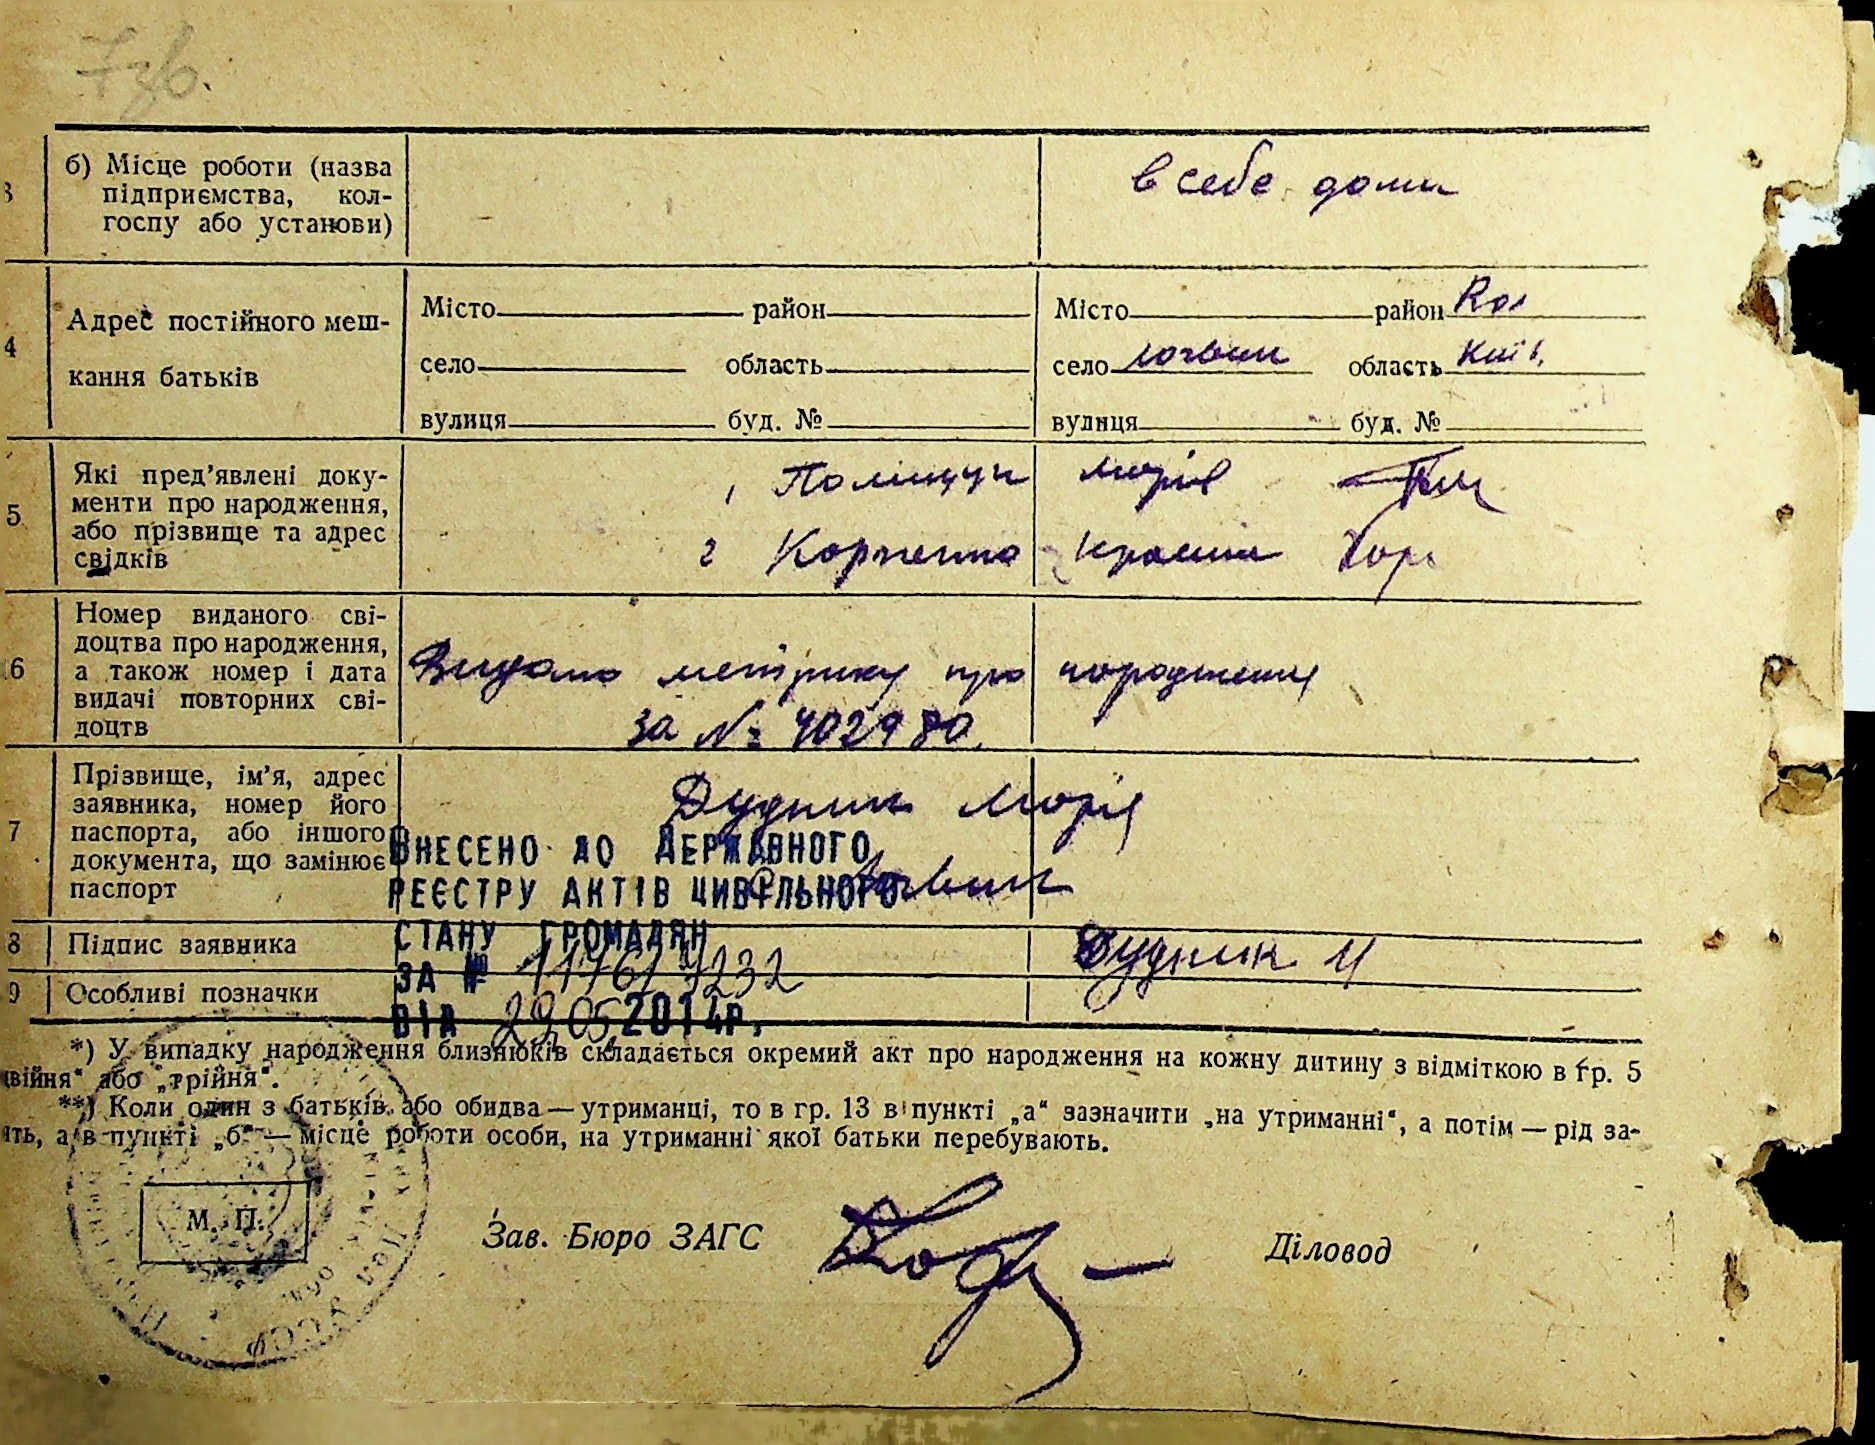 7 зв.
б) Місце роботи (назва підприємства, кол-
госпу або установи)
в себе дома
4
Адрес постійного меш-
кання батьків
Місто район
село область
вулиця буд. №
Місто район
село область Київ.
вулиця буд. №
5
Які пред'явлені доку-
менти про народження,
або прізвище та адрес
свідків
1 Полищук Марія
2 Корниенко
6
Номер виданого сві-
доцтва про народження,
а також номер і дата
видачі повторних сві-
доцтв
Видано метрику про народження
за № 402980
7
Прізвище, ім'я, адрес
заявника, номер його
паспорта, або іншого
документа, що замінює
паспорт
Дудник Марія
ВНЕСЕНО ДО ДЕРЖАВНОГО
РЕЄСТРУ АКТІВ ЦИВІЛЬНОГО
СТАНУ ГРОМАДЯН
ЗА №
ВІД 29.05.2014р.
8
Підпис заявника
Дудник М
9
Особливі позначки
*) У випадку народження близнюків складається окремий акт про народження на кожну дитину з відміткою в гр. 5
двійня" або „трійня".
**) Коли один з батьків або обидва — утриманці, то в гр. 13 в пункті „а" зазначити „на утриманні", а потім — рід за-
ять, а в пункті „б" — місце роботи особи, на утриманні якої батьки перебувають.
М. П.
Зав. Бюро ЗАГС
Діловод